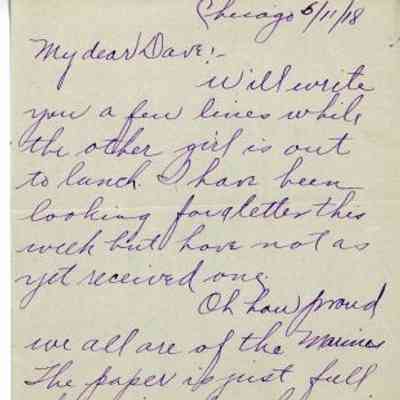 Chicago 6/11/18
My dear Dave:-
Will write
you a few lines while
the other girl is out
to lunch. I have been
looking for a letter this
week but have not as
yet received one.
Oh how proud
we all are of the Marines
The paper is just full